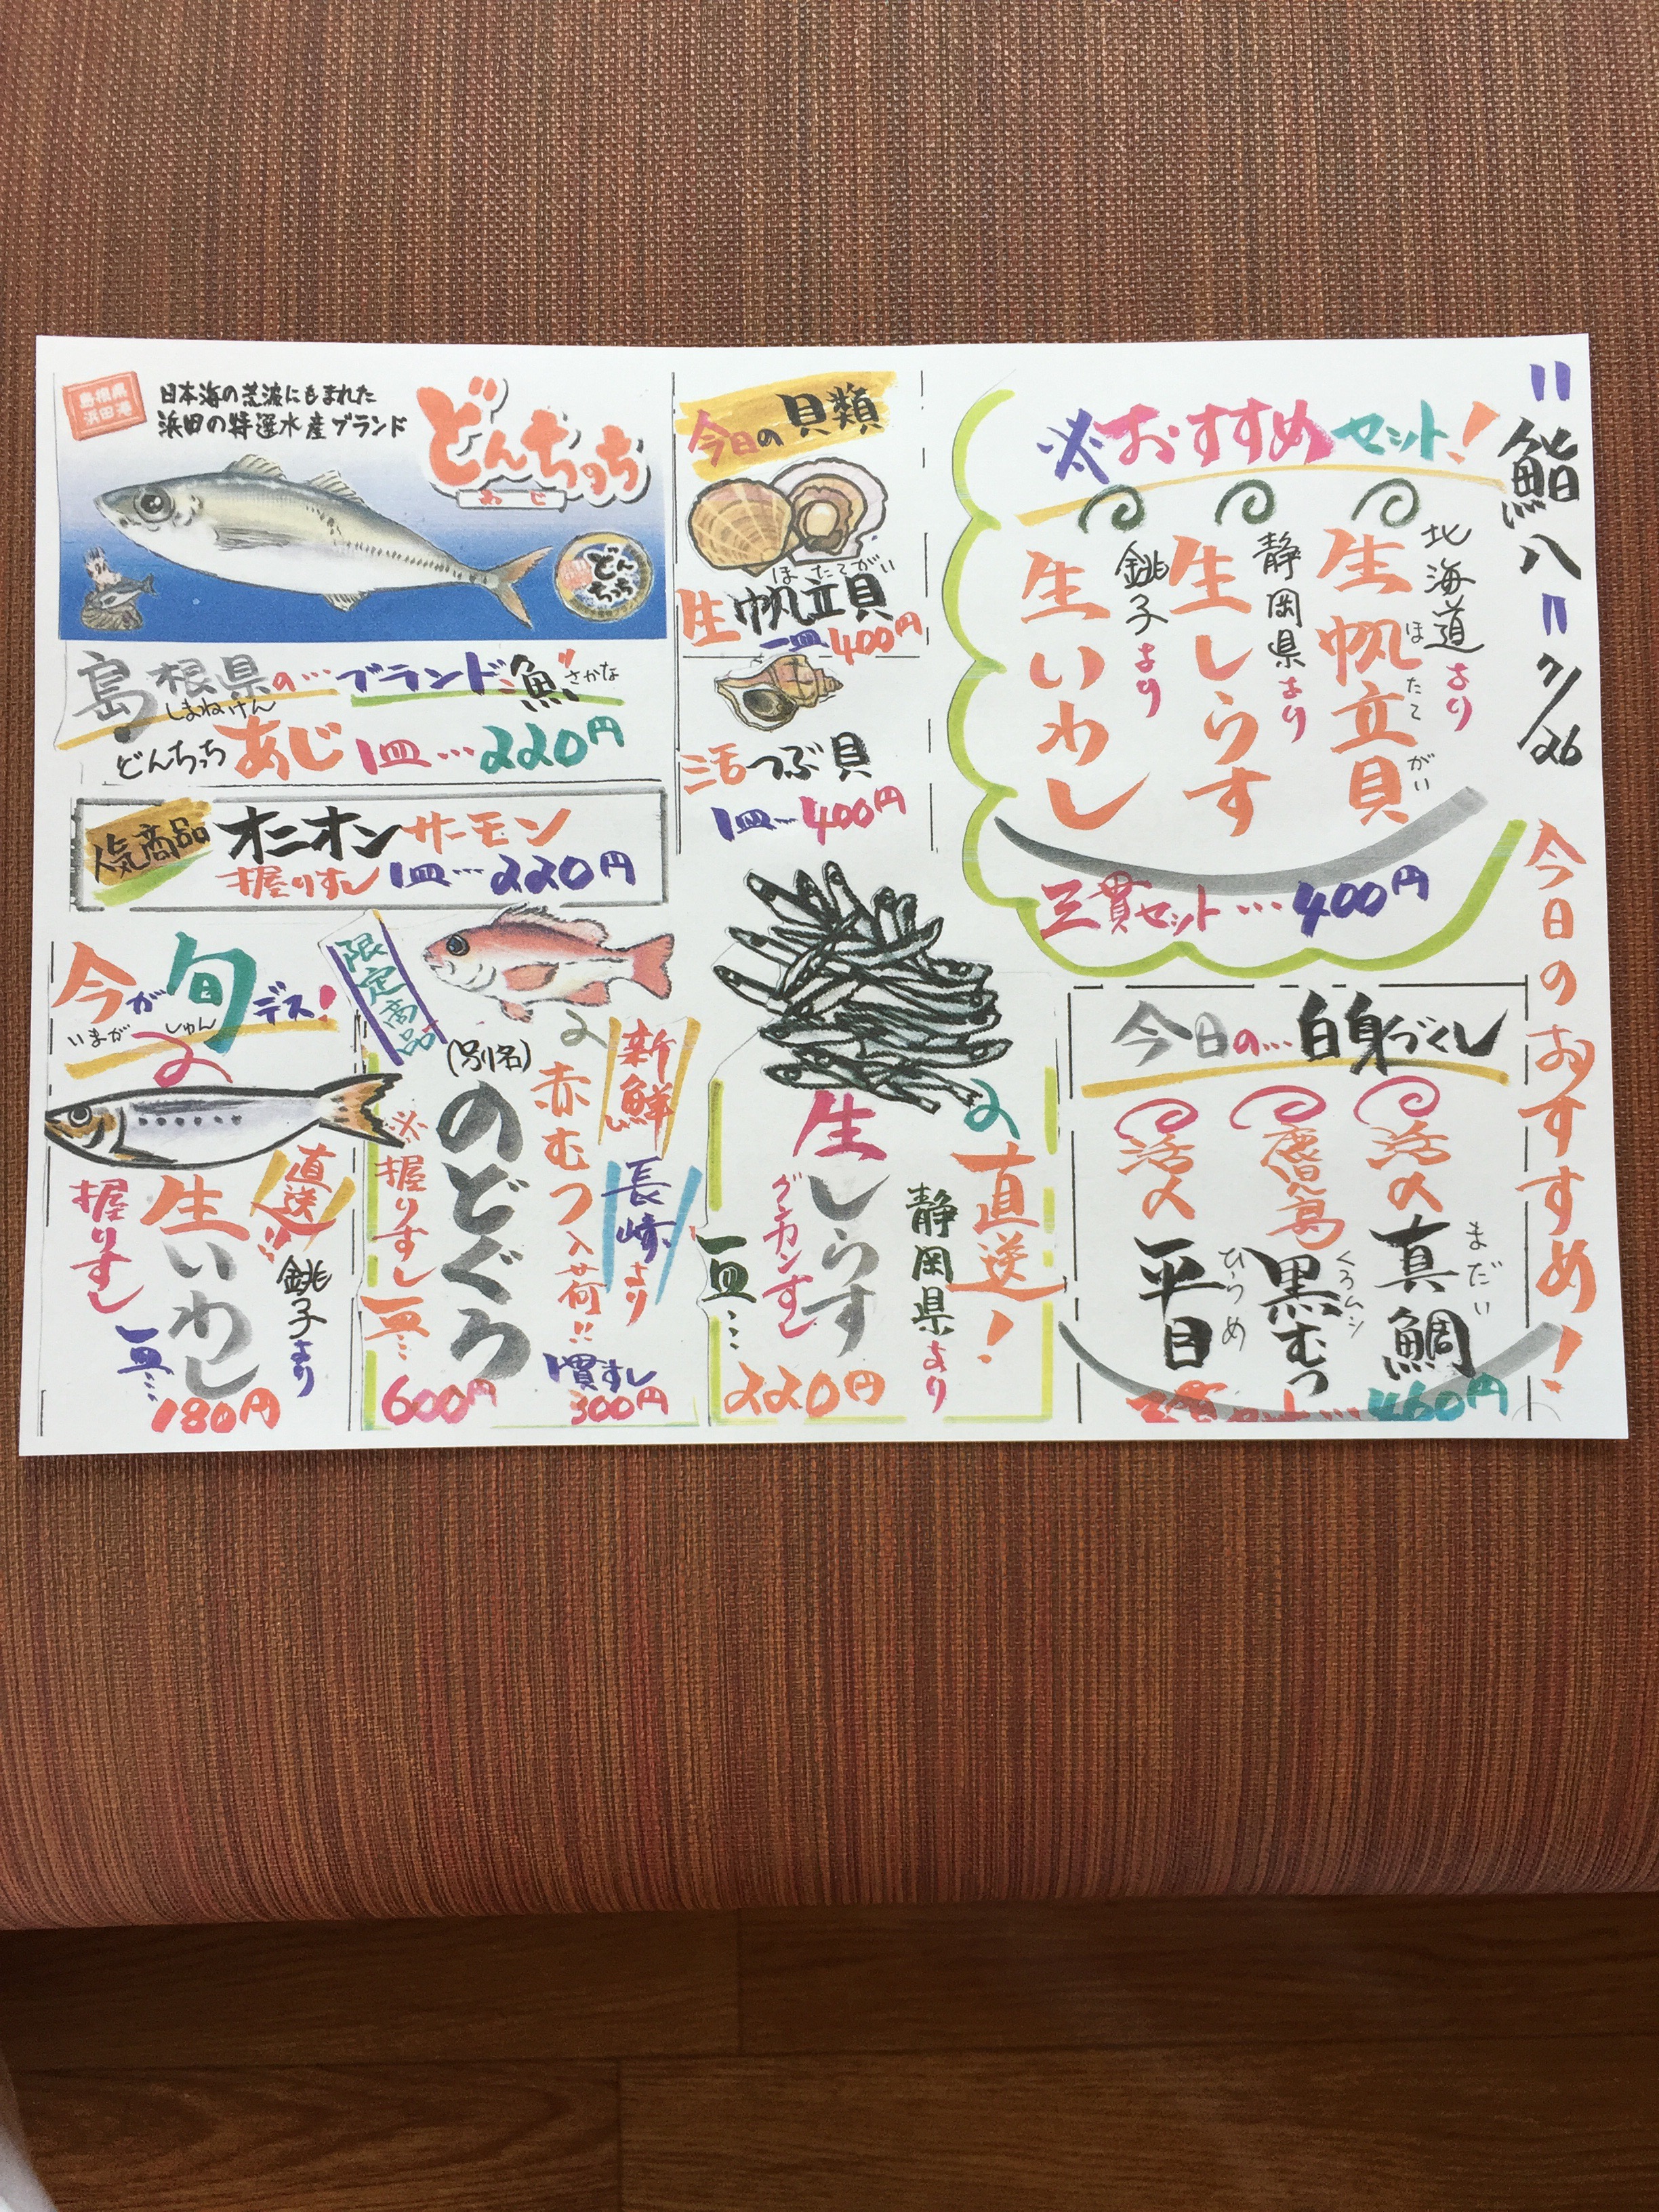 "鮨八" 7/26
今日のおすすめ!
※おすすめセット!
北海道より
生帆立貝
ほたてがい
静岡県より
生しらす
銚子より
生いわし
三貫セット…400円
今日の…白身づくし
活〆
真鯛
まだい
鹿児島
黒むつ
くろムツ
活〆
平目
ひらめ
460円
今日の貝類
ほたてがい
生帆立貝
一皿400円
活つぶ貝
1皿…400円
直送!
静岡県より
生しらす
グンカンすし
一皿…
220円
島根県
浜田港
日本海の荒波にもまれた
浜田の特選水産ブランド
どんちっち
あじ
どんちっち
島根県の…ブランド魚
しまねけん
さかな
どんちっちあじ1皿…220円
人気商品
オニオンサーモン
握りすし1皿…220円
限定商品
新鮮
長崎より
赤むつ入荷!!
(別名)
のどぐろ
※握りすし
一皿…
600円
1貫すし
300円
今が旬デス!
いまが しゅん
直送!!
銚子より
生いわし
握りすし
一皿…
180円